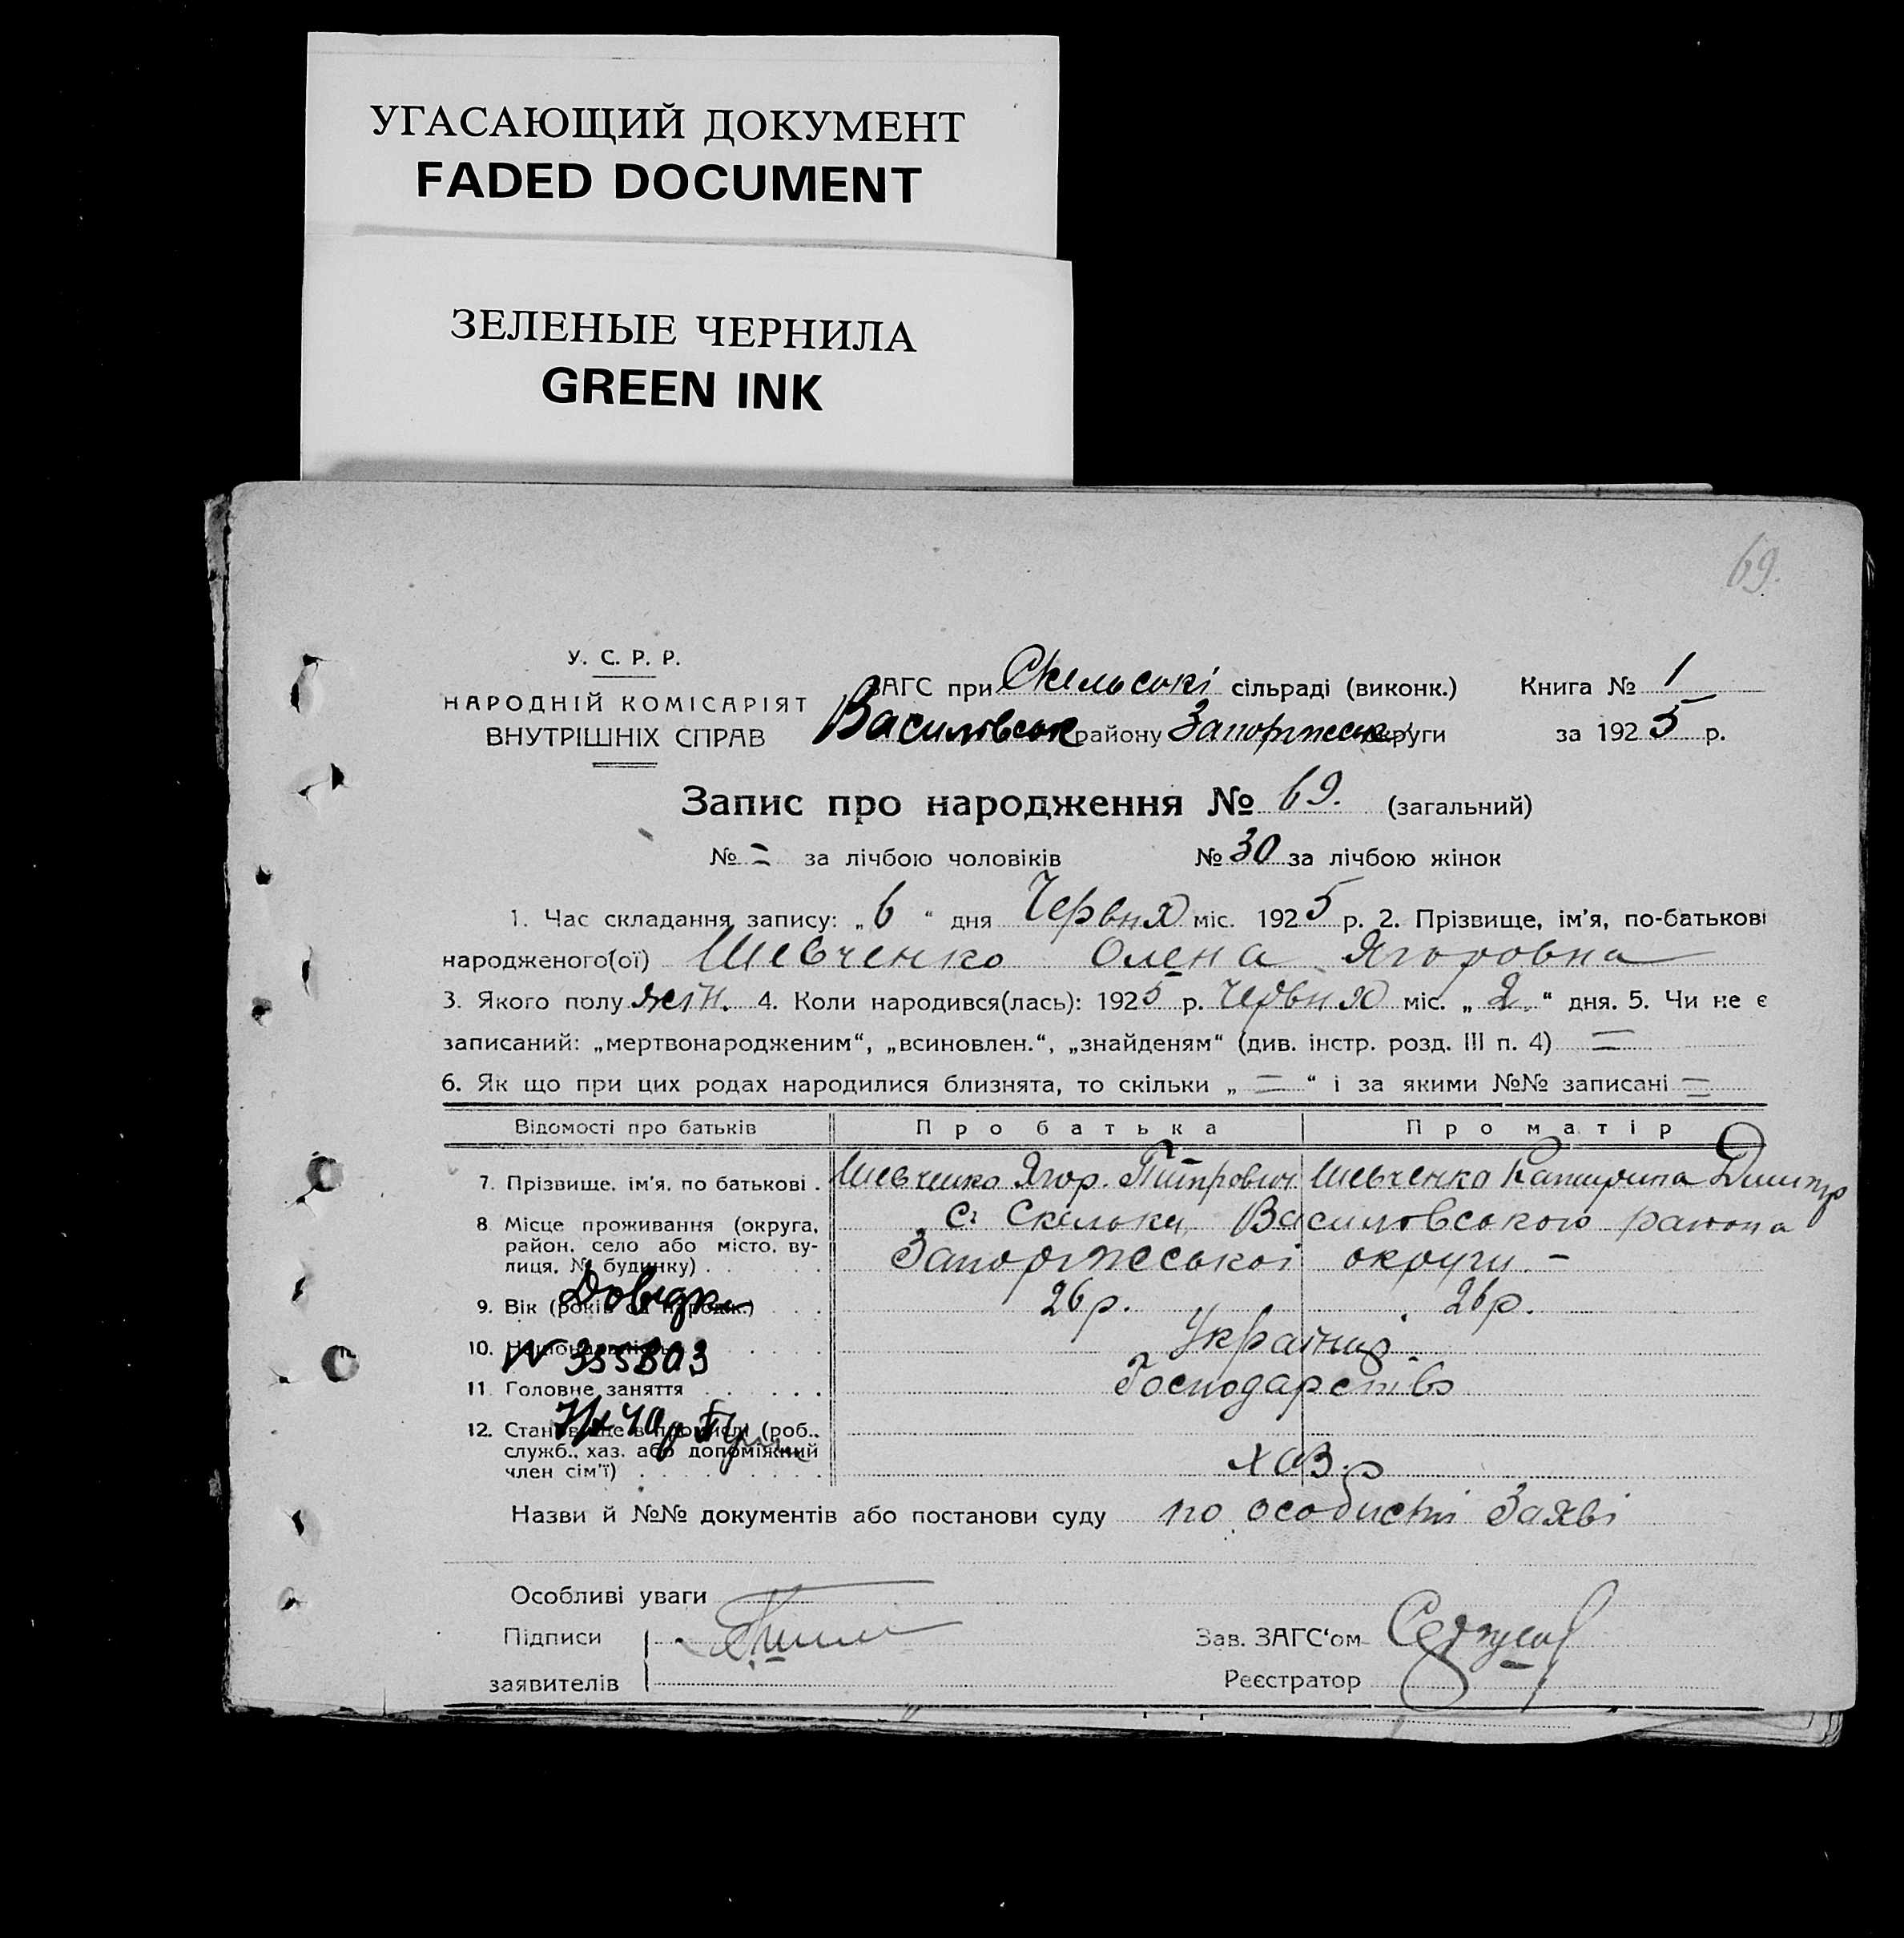 УГАСАЮЩИЙ ДОКУМЕНТ
FADED DOCUMENT
ЗЕЛЕНЫЕ ЧЕРНИЛА
GREEN INK
69.
У. С. Р. Р.
НАРОДНІЙ КОМІСАРІЯТ
ВНУТРІШНІХ СПРАВ
ЗАГС при Скельські сільраді (виконк.) Книга № 1
Василівськ району Запоржськ. округи за 1925 р.
Запис про народження № 69. (загальний)
№ = за лічбою чоловіків № 30 за лічбою жінок
1. Час складання запису: „6“ дня Червня міс. 1925 р. 2. Прізвище, ім'я, по-батькові
народженого(ої) Шевченко Олена Ягоровна
3. Якого полу жін. 4. Коли народився(лась): 1925 р. Червня міс. „2“ дня. 5. Чи не є
записаний: „мертвонародженим“, „всиновлен.“, „знайденям“ (див. інстр. розд. III п. 4) =
6. Як що при цих родах народилися близнята, то скільки „=“ і за якими №№ записані =
Відомості про батьків Про батька Про матір
7. Прізвище, ім'я, по батькові . Шевченко Ягор. Питрович Шевченко Катирина Дмитр
8 Місце проживання (округа, с. Скельки Василовського района
район, село або місто, ву-
лиця, № будинку) . . . Запоржської округи. –
Довідка
9. Вік (років од народж.) . . . 26 р. 26 р.
10. Національність . . . Україний.
N 355803
11 Головне заняття . . . . . . Господарство
12. Становище в промислі (роб.,
служб., хаз. або допоміжний
член сім'ї) . . . . . . . . . хоз.
Назви й №№ документів або постанови суду по особисті Заяві
Особливі уваги
Підписи
заявителів
Зав. ЗАГС'ом
Реєстратор